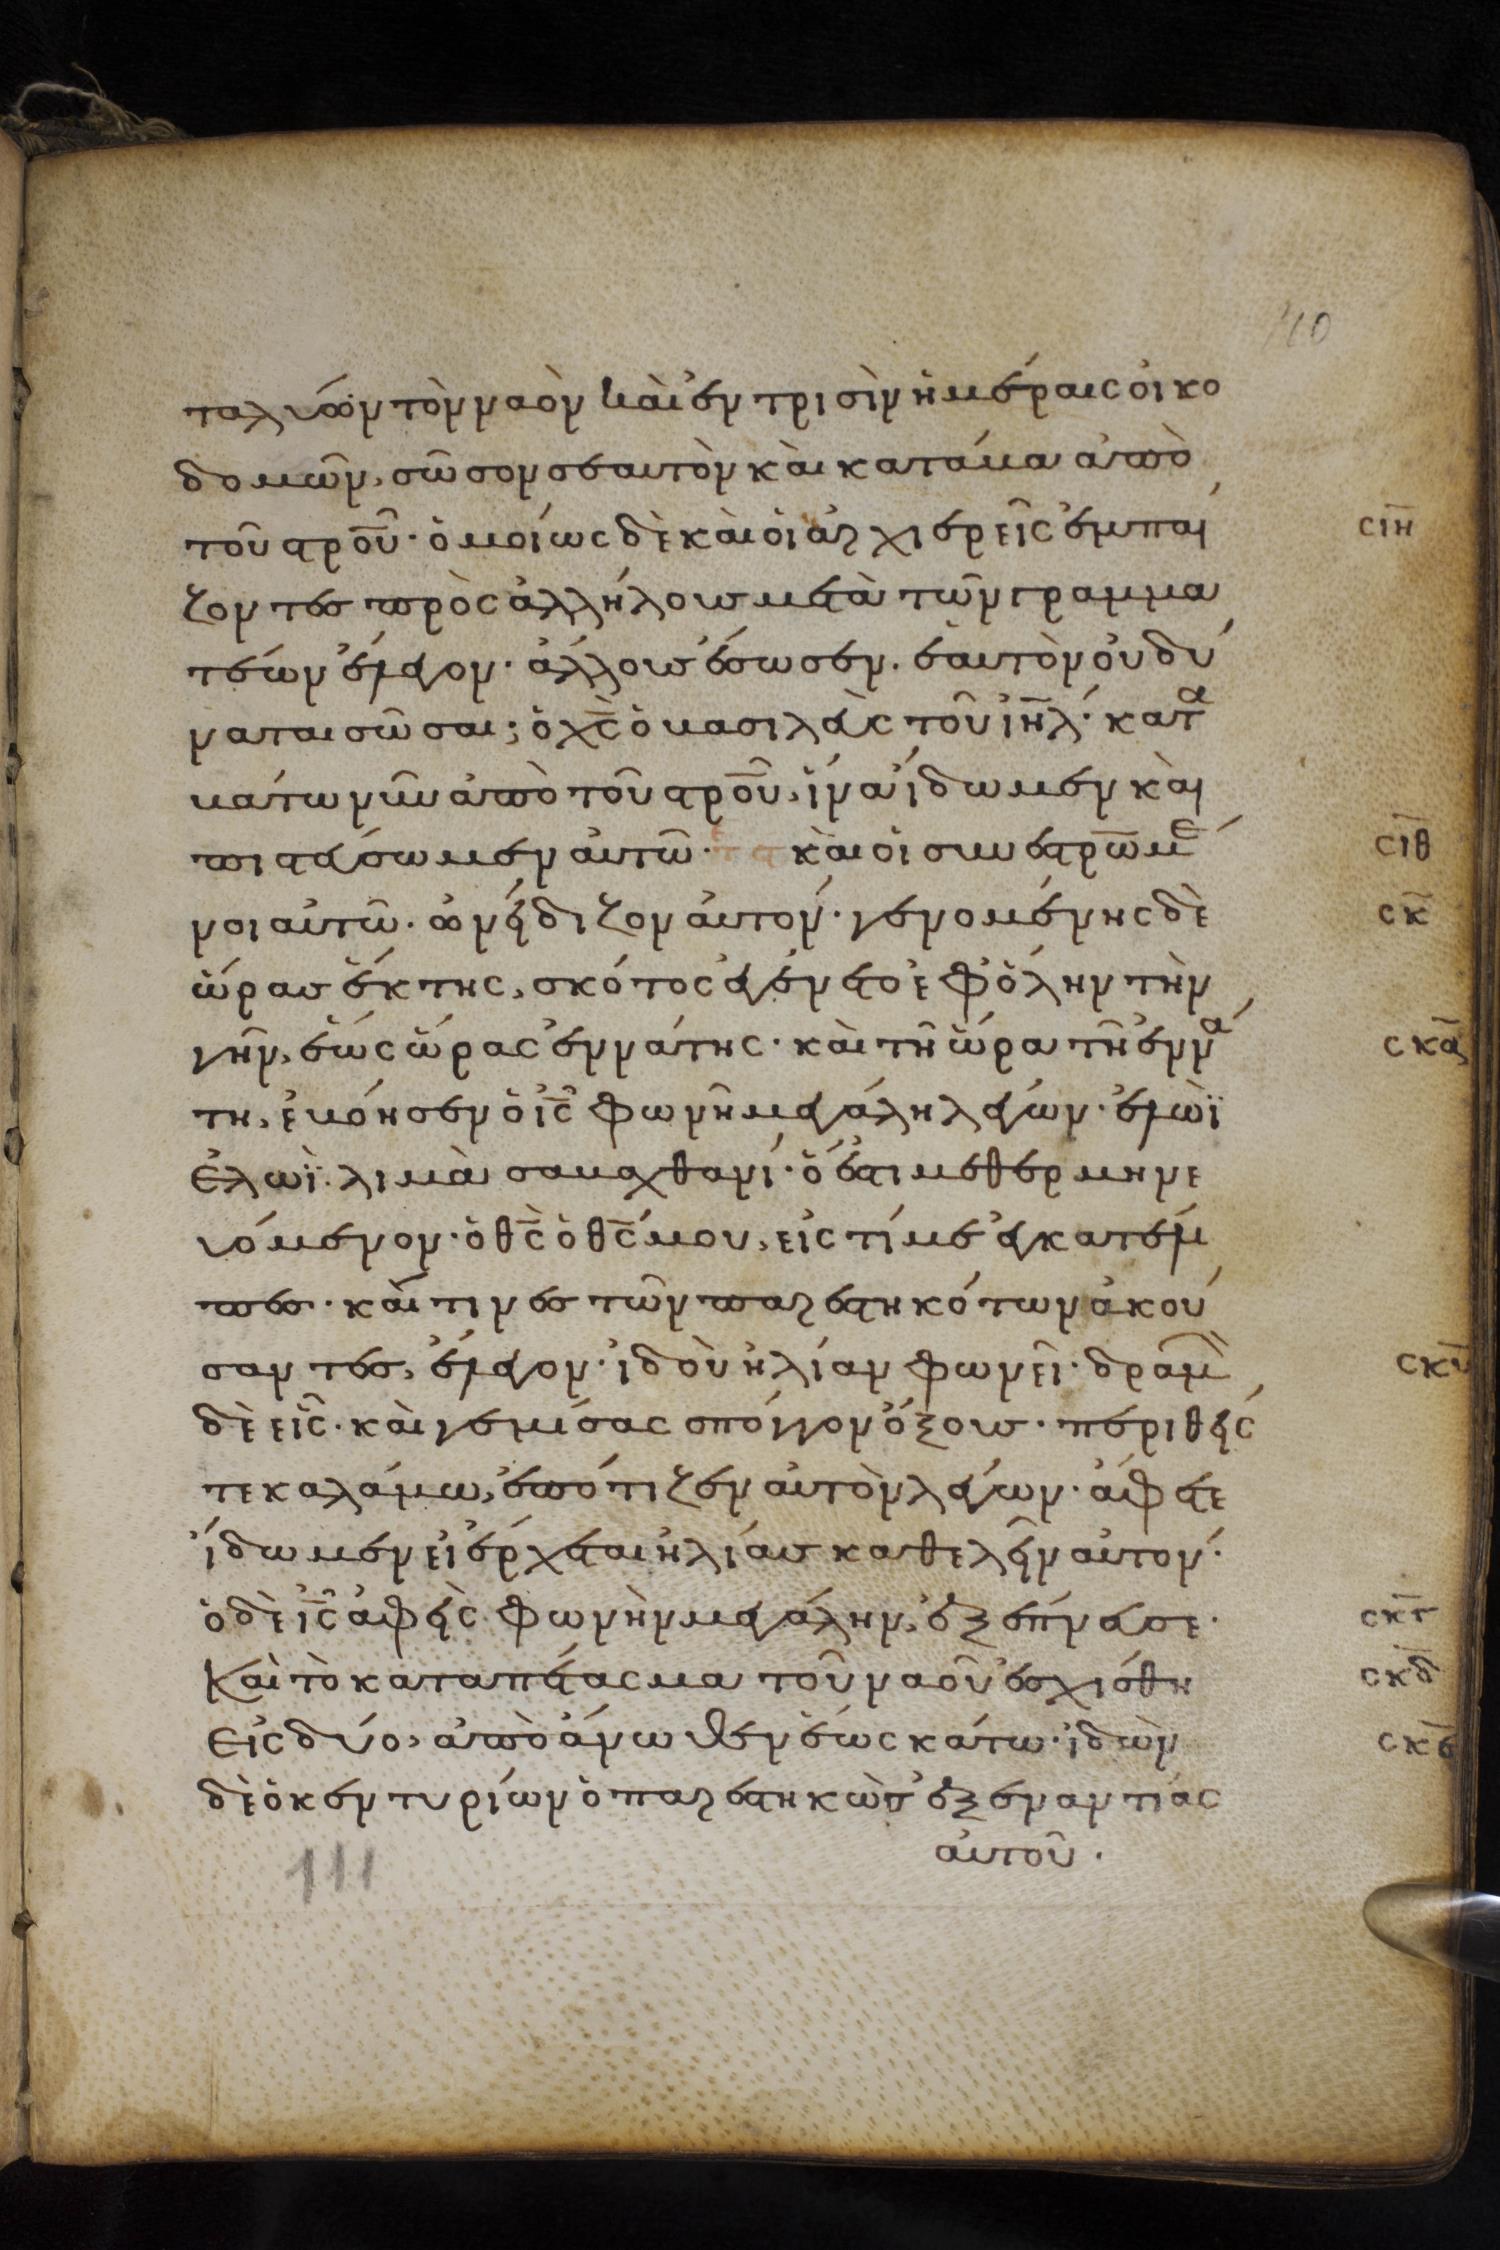 110
ταλύων τὸν ναὸν καὶ ἐν τρισὶν ἡμέραις οἰκο
δομῶν, σῶσον σεαυτὸν καὶ κατάβα ἀπὸ
τοῦ στ̅ρο̅ῦ· ὁμοίως δὲ καὶ οἱ ἀρχιερεῖς ἐμπαί
ζοντες πρὸς ἀλλήλους μετὰ τῶν γραμμα
τέων ἔλεγον· ἄλλους ἔσωσεν. ἑαυτὸν οὐ δύ
ναται σῶσαι; ὁ χ̅ς̅ ὁ βασιλεὺς τοῦ ἰη̅λ̅· κατα
βάτω νῦν ἀπὸ τοῦ στρο̅ῦ, ἵνα ἴδωμεν καὶ
πιστεύσωμεν αὐτῶ· καὶ οἱ συνεστρω̅μέ
νοι αὐτῶ. ὠνείδιζον αὐτόν· γενομένης δὲ
ὥρας ἕκτης, σκότος ἐγένετο ἐφ ὅλην τὴν
γῆν, ἕως ὥρας ἐννάτης· καὶ τῆ ὥρα τῆ ἐννά
τη, ἐβόησεν ὁ ι̅ς̅ φωνῆ μεγάλη λέγων· ἐλωῒ
ἐλωῒ. λιμὰ σαβαχθανί· ὅ ἐστι μεθερμηνε
υόμενον· ὁ θ̅ς̅ ὁ θ̅ς̅ μου, εἰς τί με ἐγκατέλι
πες· καί τινες τῶν παρεστηκότων ἀκού
σαντες, ἔλεγον· ἰδοὺ ἠλίαν φωνεῖ· δραμὼ
δὲ εἷς· καὶ γεμίσας σπόγγον ὄξους· περιθείς
τε καλάμω, ἐπότιζεν αὐτὸν λέγων· ἄφετε
ἴδωμεν εἰ ἔρχεται ἠλίας καθελεῖν αὐτόν·
ὁ δὲ ι̅ς̅ ἀφεὶς φωνὴν μεγάλην, ἐξέπνευσε·
Καὶ τὸ καταπέτασμα τοῦ ναοῦ ἐσχίσθη
εἰς δύο, ἀπὸ ἄνωθεν ἕως κάτω· ἰδὼν
δὲ ὁ κεντυρίων ὁ παρεστηκὼς ἐξ ἐναντίας
αὐτοῦ.
111
σιη̅
σιθ̅
σκ̅
σκα̅
σκβ̅
σκγ̅
σκδ̅
σκε̅